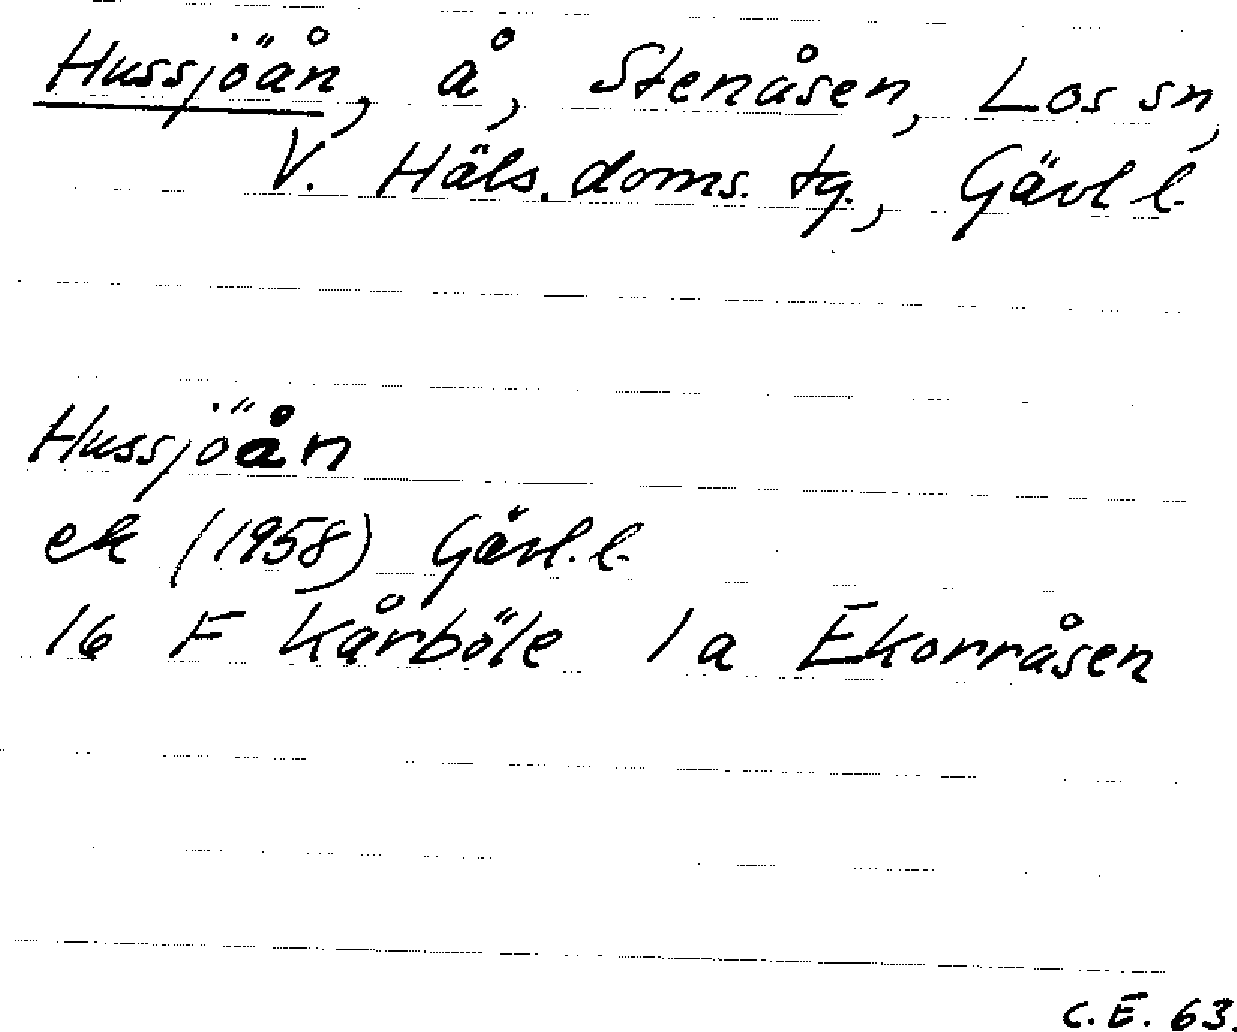 Hussjöån, å, Stenåsen, Los sn,
V. Häls. doms. tg., Gävl l.
Hussjöån
ek (1958) Gävl. l.
16 F Kårböle 1 a Ekorråsen
C. E. 63.